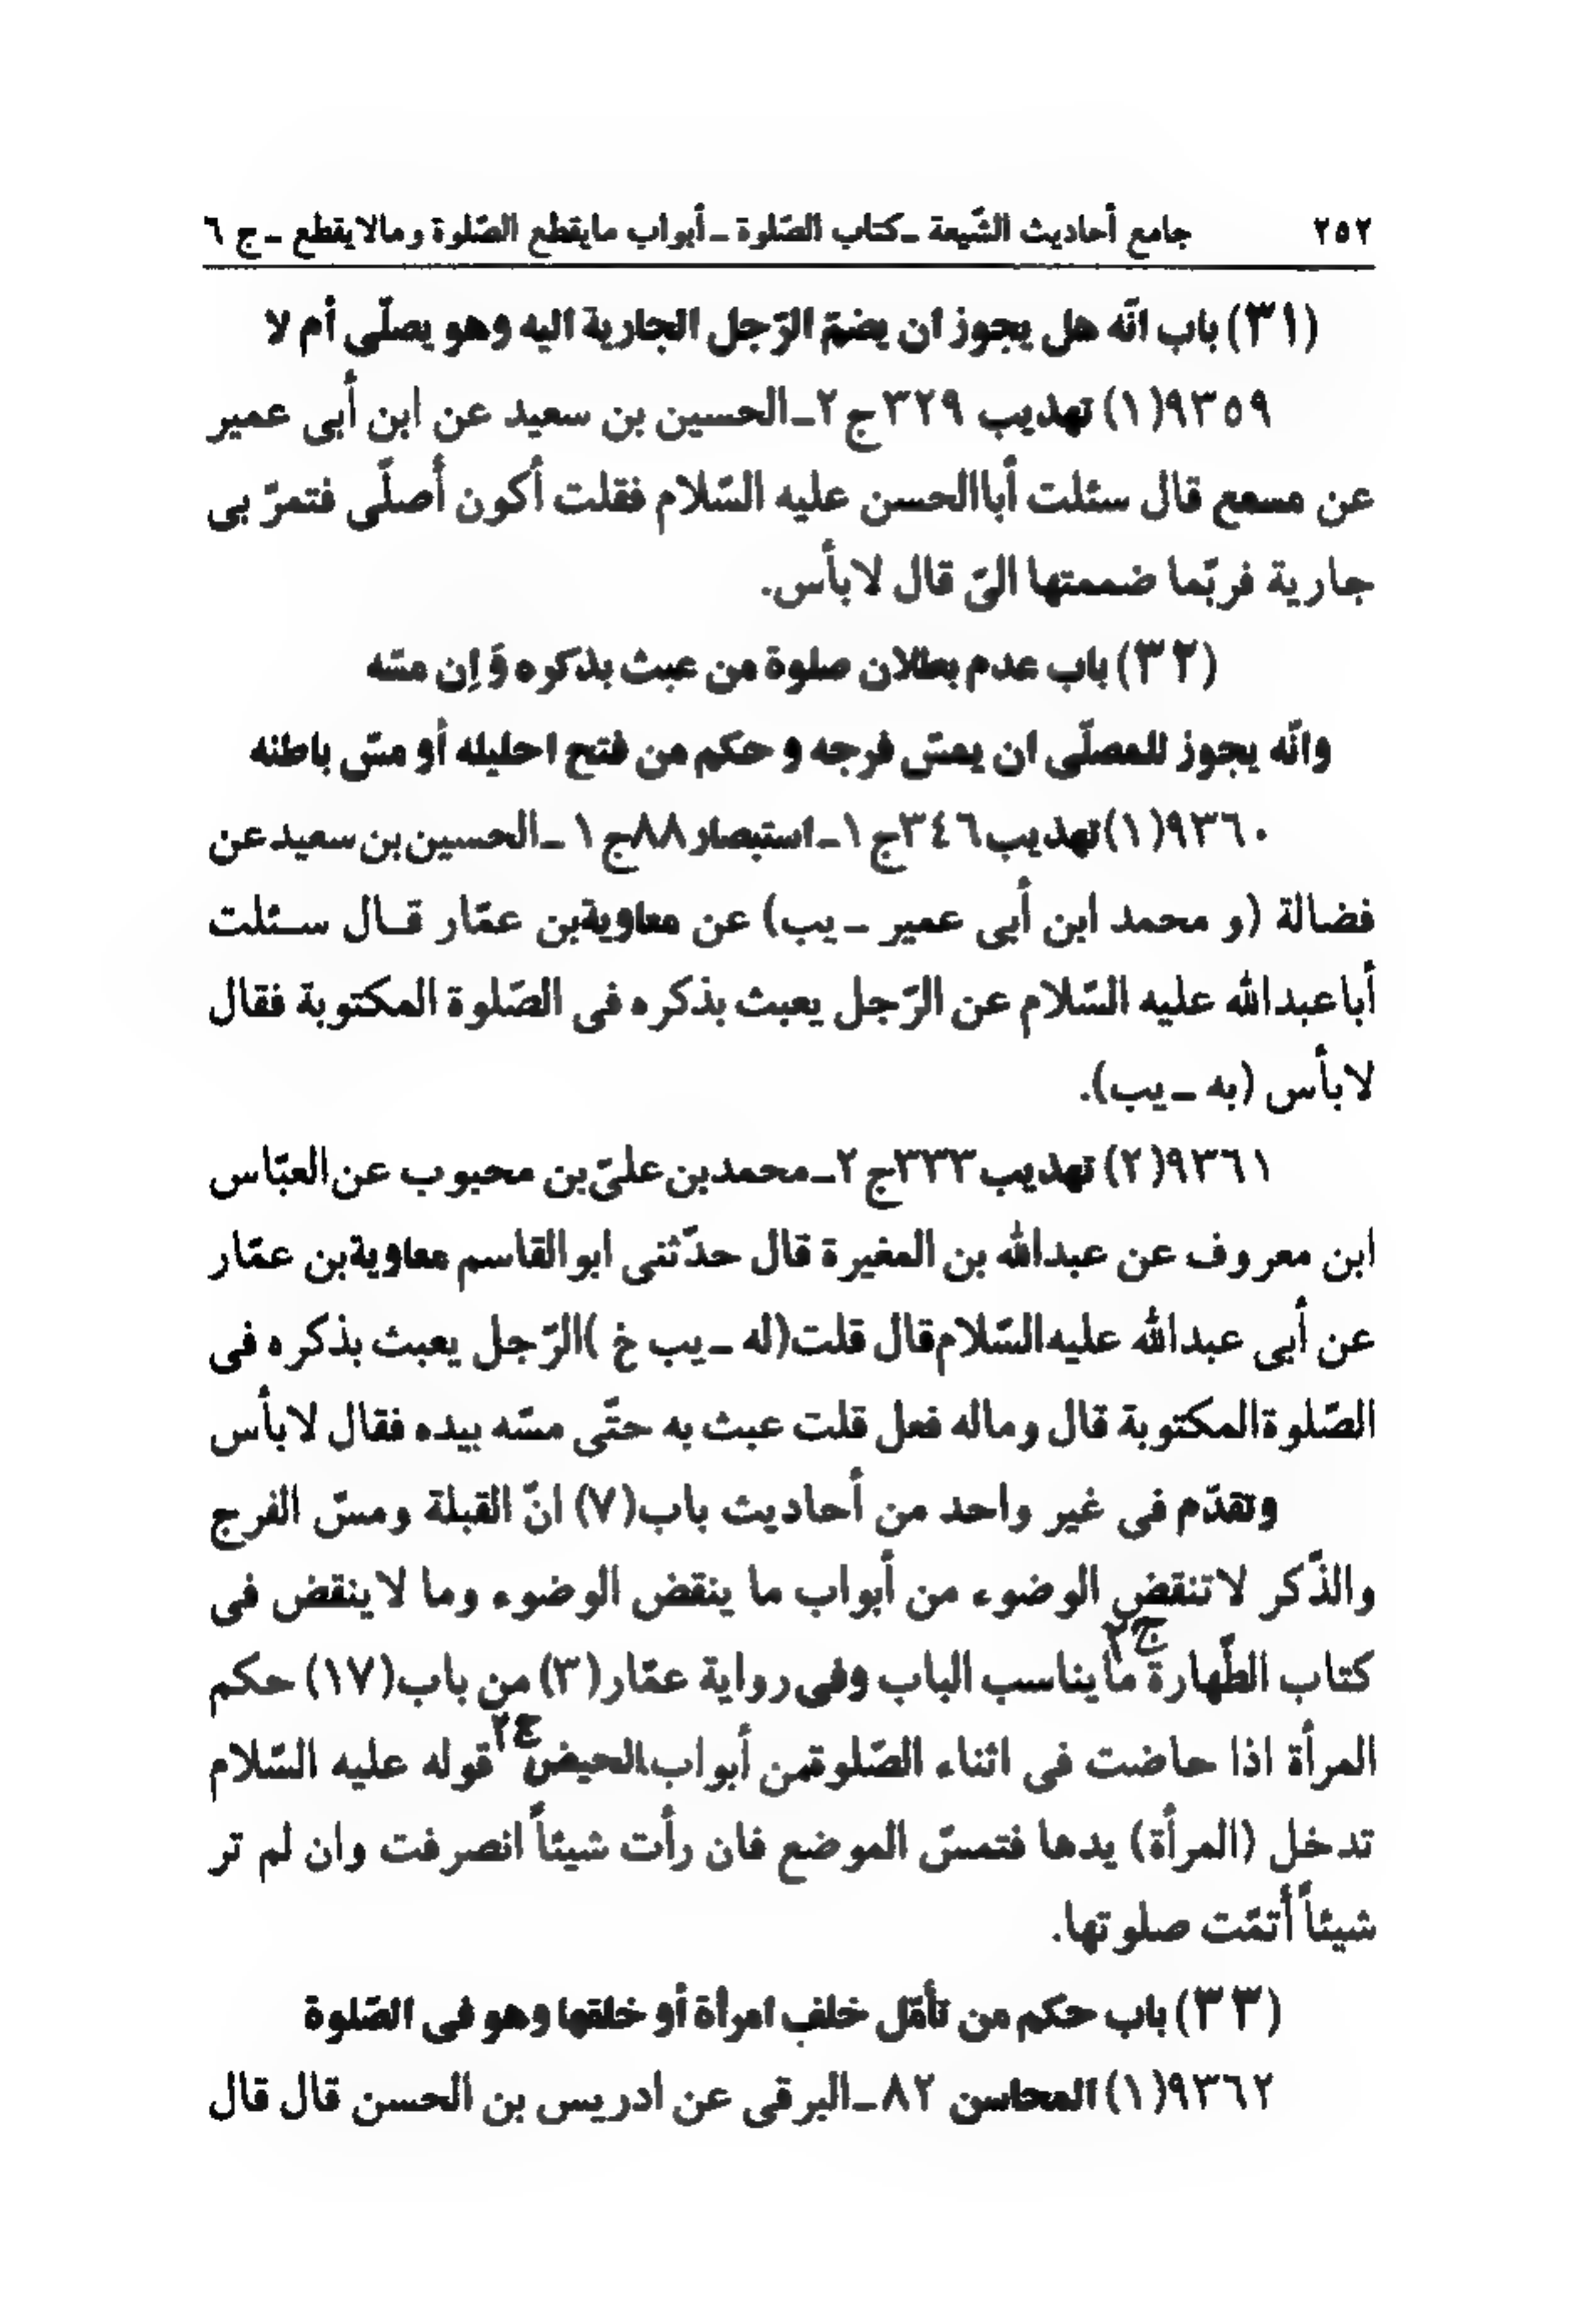 ٢٥٢ جامع أحاديث الشّيعة ـ كتاب الصّلوة ـ أبواب مايقطع الصّلوة ومالايقطع ـ ج ٦
(٣١) باب انّه هل يجوز ان يضمّ الرّجل الجارية اليه وهو يصلّى أم لا
٩٣٥٩(١) تهذيب ٣٢٩ ج ٢ـ الحسين بن سعيد عن ابن أبى عمير
عن مسمع قال سئلت أباالحسن عليه السّلام فقلت أكون أصلّى فتمرّ بى
جارية فربّما ضممتها الىّ قال لابأس.
(٣٢) باب عدم بطلان صلوة من عبث بذكره وَ اِن مسّه
وانّه يجوز للمصلّى ان يمسّ فرجه و حكم من فتح احليله أو مسّ باطنه
٩٣٦٠(١) تهذيب ٣٤٦ ج ١ـ استبصار ٨٨ ج ١ ـ الحسين بن سعيد عن
فضالة (و محمد ابن أبى عمير ـ يب) عن معاويةبن عمّار قـال سـئلت
أباعبدالله عليه السّلام عن الرّجل يعبث بذكره فى الصّلوة المكتوبة فقال
لابأس (به ـ يب).
٩٣٦١(٢) تهذيب ٣٣٣ ج ٢ـ محمدبن علىّ بن محبوب عن العبّاس
ابن معروف عن عبدالله بن المغيرة قال حدّثنى ابوالقاسم معاويةبن عمّار
عن أبى عبدالله عليه السّلام قال قلت (له ـ يب خ) الرّجل يعبث بذكره فى
الصّلوة المكتوبة قال وماله فعل قلت عبث به حتّى مسّه بيده فقال لابأس
وتقدّم فى غير واحد من أحاديث باب (٧) انّ القبلة ومسّ الفرج
والذّكر لاتنقض الوضوء من أبواب ما ينقض الوضوء وما لاينقض فى
كتاب الطّهارة ج٢ مايناسب الباب وفى رواية عمّار (٣) من باب (١٧) حكم
المرأة اذا حاضت فى اثناء الصّلوةمن أبواب الحيض ج٢ قوله عليه السّلام
تدخل (المرأة) يدها فتمسّ الموضع فان رأت شيئاً انصرفت وان لم تر
شيئاً أتمّت صلوتها.
(٣٣) باب حكم من تأمّل خلف امرأة أو خلقها وهو فى الصّلوة
٩٣٦٢(١) المحاسن ٨٢ ـ البرقى عن ادريس بن الحسن قال قال